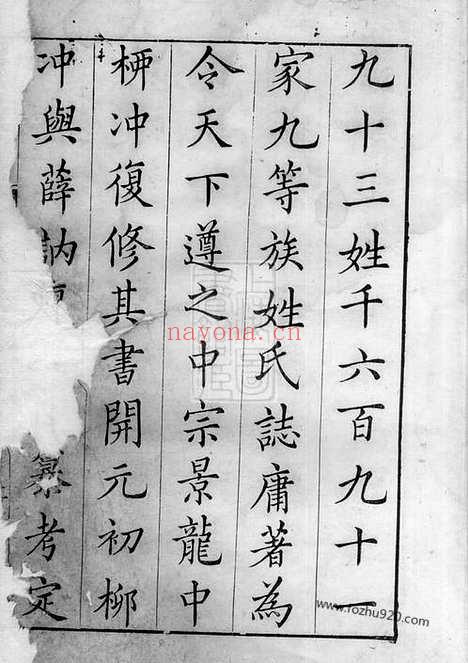 九十三姓千六百九十一
家九等族姓氏誌庸著為
令天下遵之中宗景龍中
柳冲復修其書開元初柳
冲與薛訥纂考定
nayona.cn
www.fozhu920.com